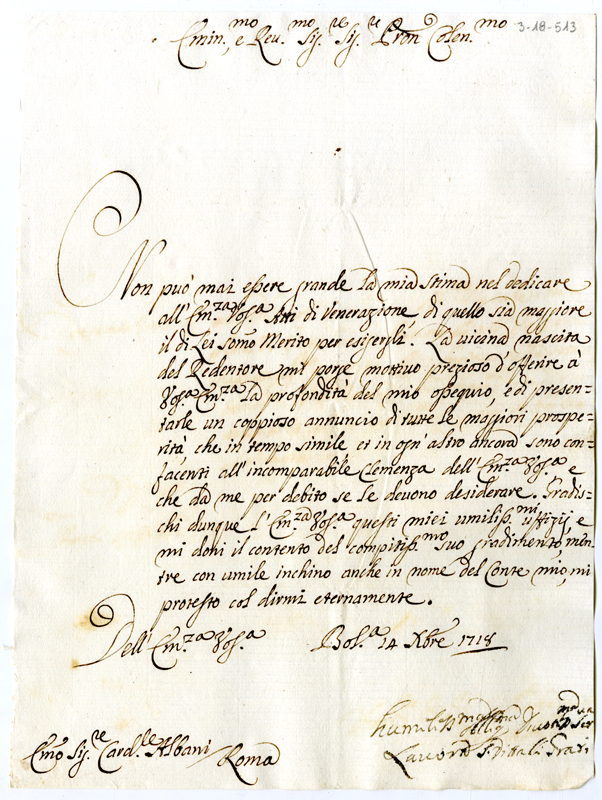 3-18-513
Emin.mo, e Reu.mo Sig.re Sig.re Pron Colen.mo
Non può mai essere grande la mia stima nel dedicare
all'Em.za Vos.a Atti di venerazione di quello sia maggiore
il di Lei somo Merito per esigergli. La vicina nascita
del Redentore mi porge motivo prezioso d'offerire à
Vos.a Em.za la profondità del mio ossequio, e di presen-
tarle un coppioso annuncio di tutte le maggiori prospe-
rità, che in tempo simile et in ogn'altro ancora sono con-
facenti all'incomparabile Clemenza dell'Em.za Vos.a e
che da me per debito se le devono desiderare. Gradis-
chi dunque l'Em.za Vos.a questi miei umiliss.mi uffizij, e
mi doni il contento del compitiss.mo suo gradimento, men-
tre con umile inchino anche in nome del Conte mio, mi
protesto col dirmi eternamente.
Dell'Em.za Vos.a Bol.a 14 Xbre 1718
Emo Sig.re Card.le Albani Roma